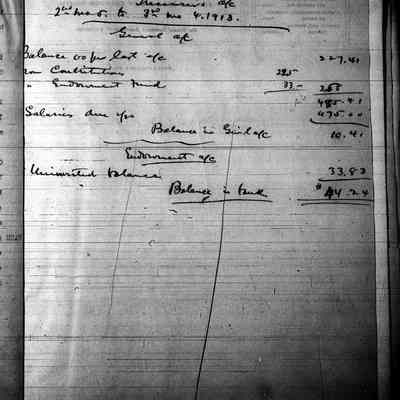 Treasurer's a/c
2nd mo 5. to 3rd mo 4. 1913.
Genl a/c
Balance as per last a/c 227.41
Contributions 225
" Endowment Fund 33.- 258
485.41
Salaries due 475.00
Balance in Genl a/c 10.41
Endowment a/c
Uninvested balance 33.83
Balance in bank $44.24